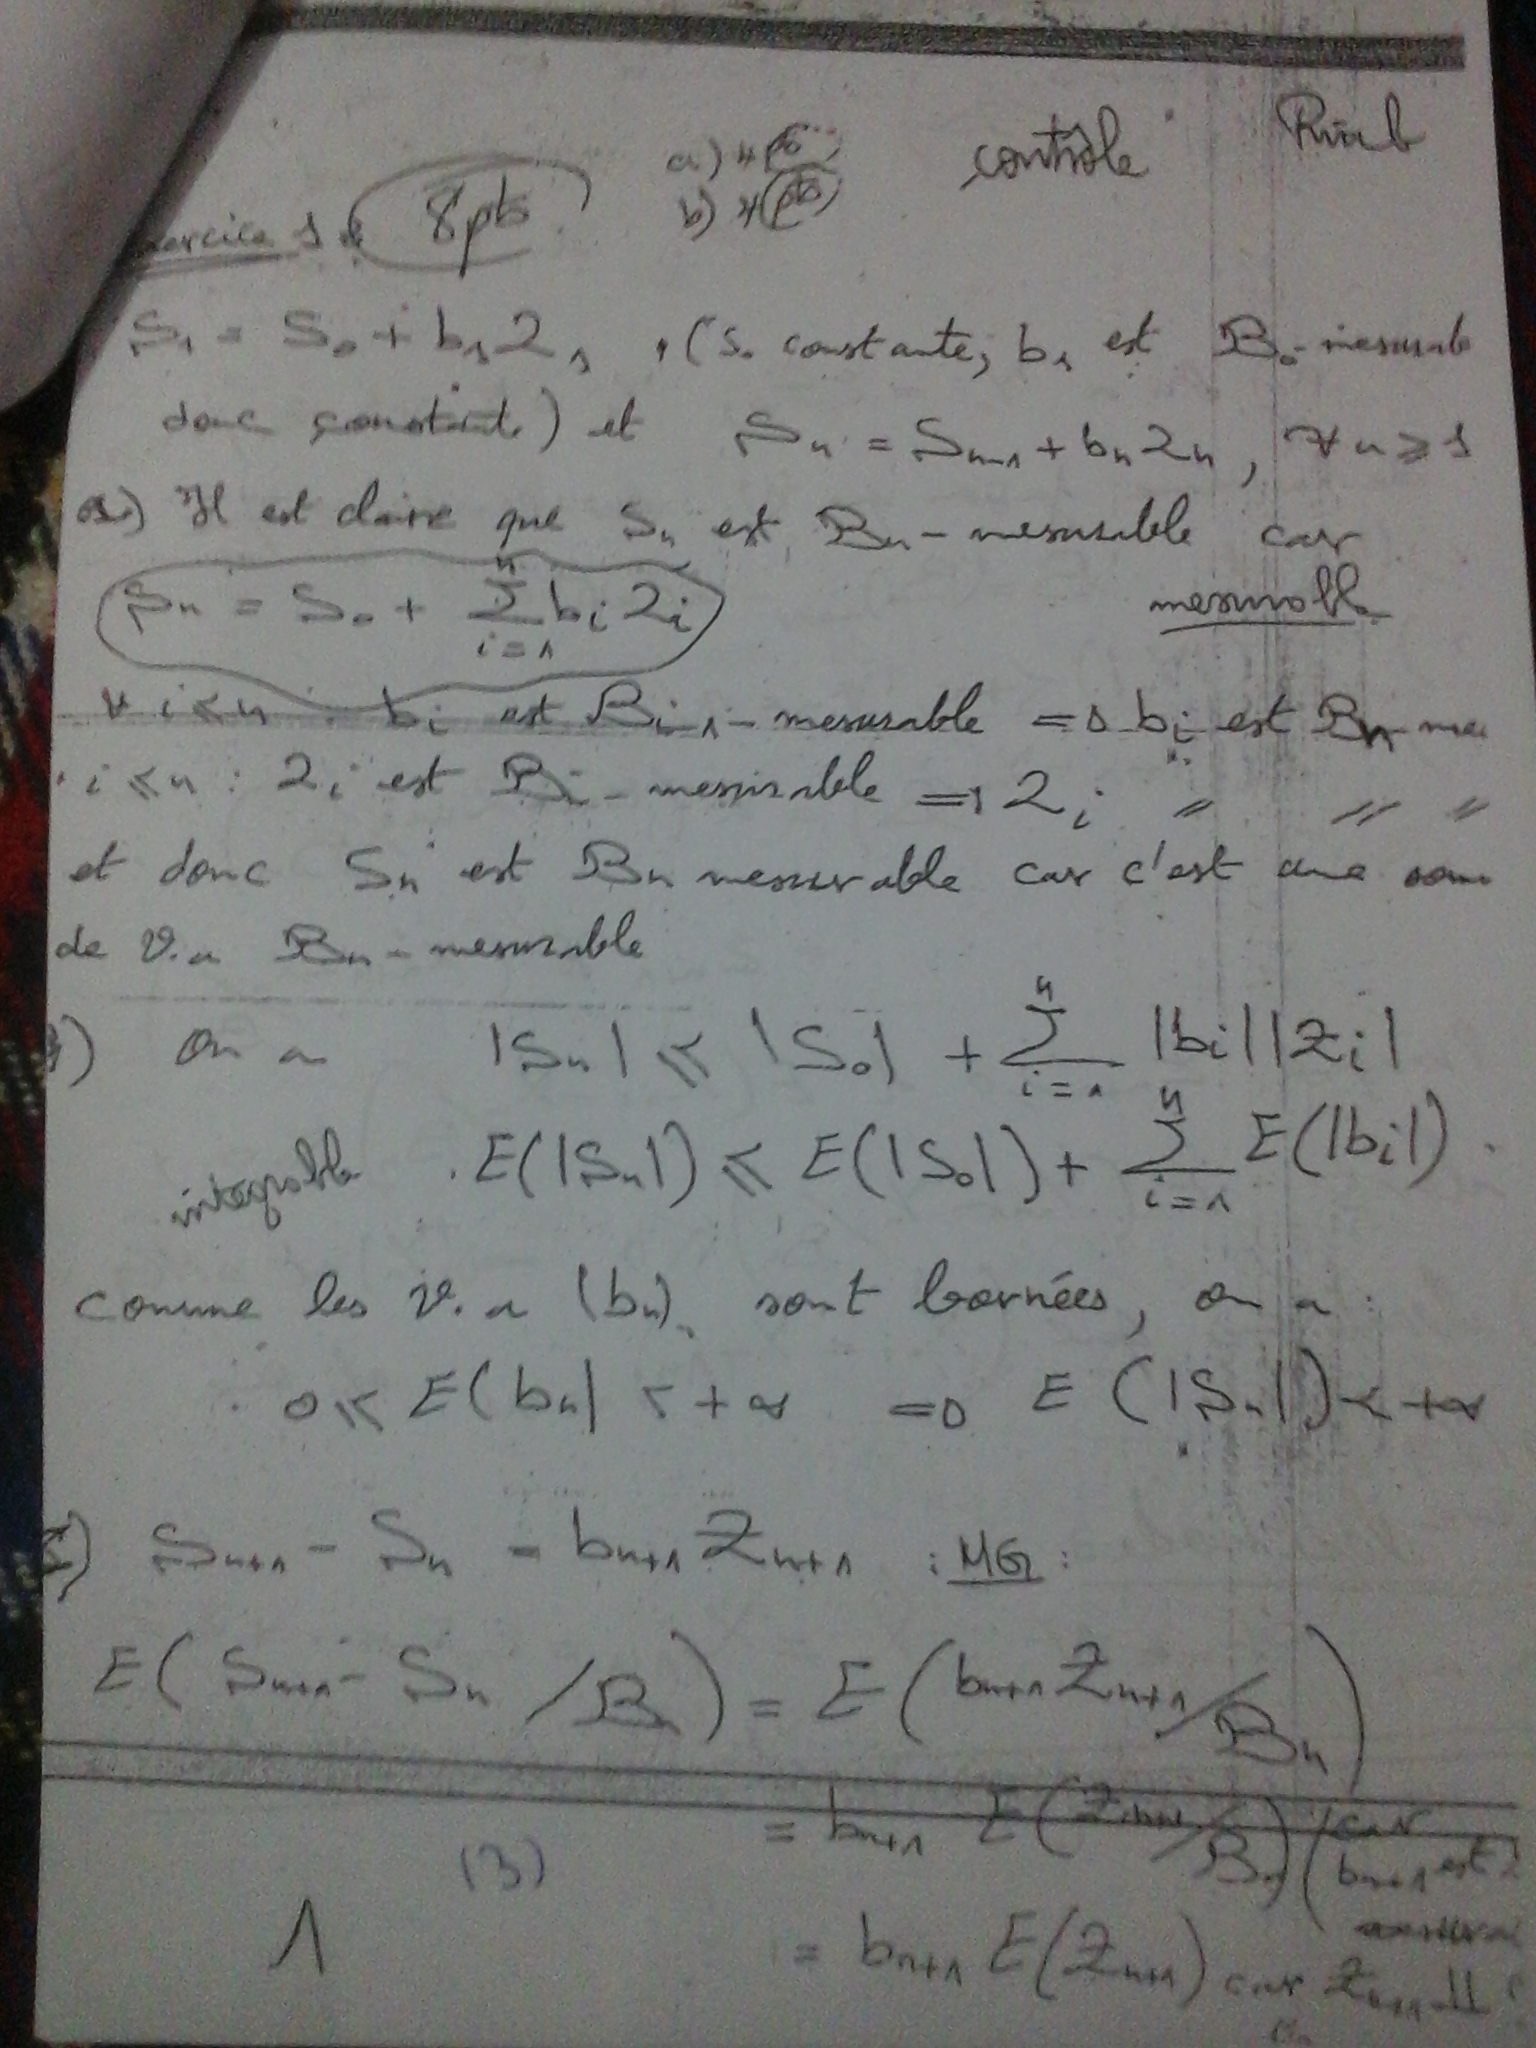 contrôle
a) 4 pts
b) 4 pts
Exercice 1 : 8pts
S₁ = S₀ + b₁Z₁, (S₀ constante, b₁ est B₀-mesurab
donc constante) et Sₙ = Sₙ₋₁ + bₙZₙ, ∀ n ≥ 1
a) Il est claire que Sₙ est Bₙ-mesurable car
Sₙ = S₀ + ∑ⁿᵢ₌₁ bᵢZᵢ mesurable
∀ i ≤ n : bᵢ est Bᵢ₋₁-mesurable => bᵢ est Bₙ-me
i ≤ n : Zᵢ est Bᵢ-mesurable => Zᵢ " " "
et donc Sₙ est Bₙ mesurable car c'est une som
de v.a Bₙ-mesurable
) On a |Sₙ| ≤ |S₀| + ∑ⁿᵢ₌₁ |bᵢ||Zᵢ|
integrable E(|Sₙ|) ≤ E(|S₀|) + ∑ⁿᵢ₌₁ E(|bᵢ|).
comme les v.a (bₙ) sont bornées, on a :
0 ≤ E(bₙ| < +∞ => E(|Sₙ|) < +∞
) Sₙ₊₁ - Sₙ = bₙ₊₁Zₙ₊₁ : MG :
E(Sₙ₊₁ - Sₙ / B) = E(bₙ₊₁Zₙ₊₁ / Bₙ)
= bₙ₊₁ E(Zₙ₊₁ / Bₙ) (car bₙ₊₁ est
(3)
1
= bₙ₊₁ E(Zₙ₊₁) car Zₙ₊₁ ⊥⊥